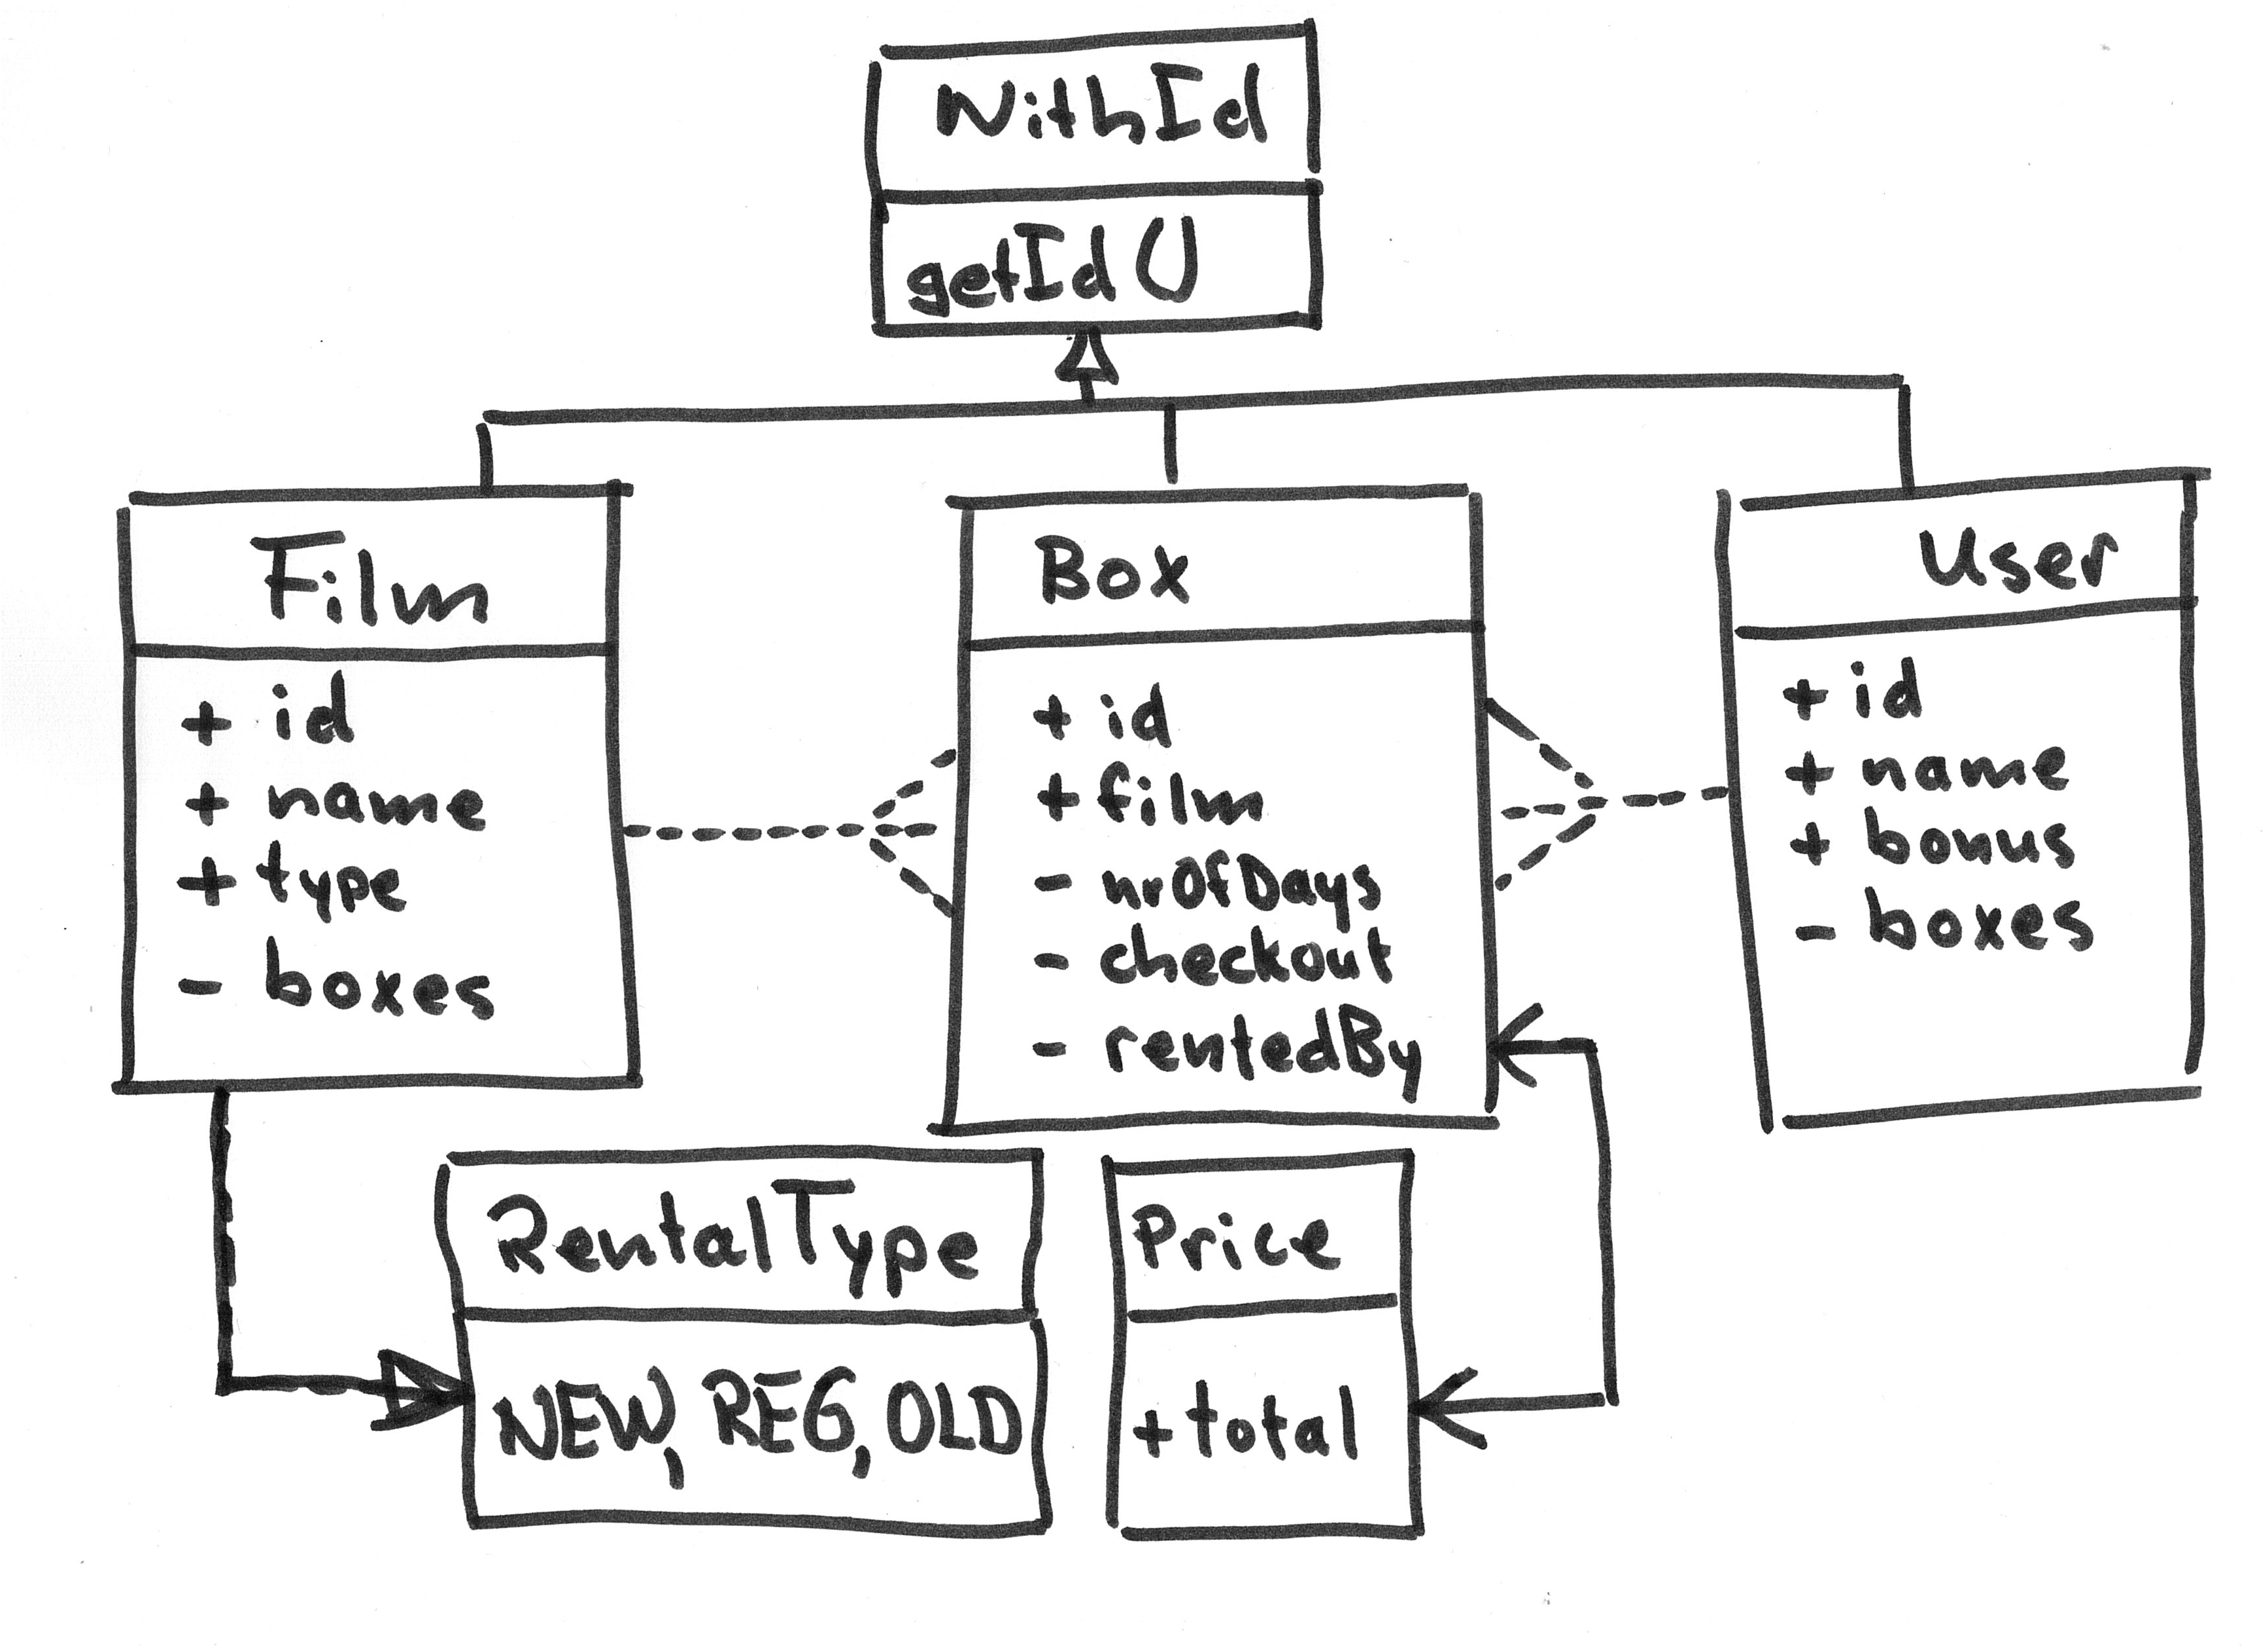 WithId
getId()
Film
+ id
+ name
+ type
- boxes
Box
+ id
+ film
- nrOfDays
- checkout
- rentedBy
User
+ id
+ name
+ bonus
- boxes
RentalType
NEW, REG, OLD
Price
+ total